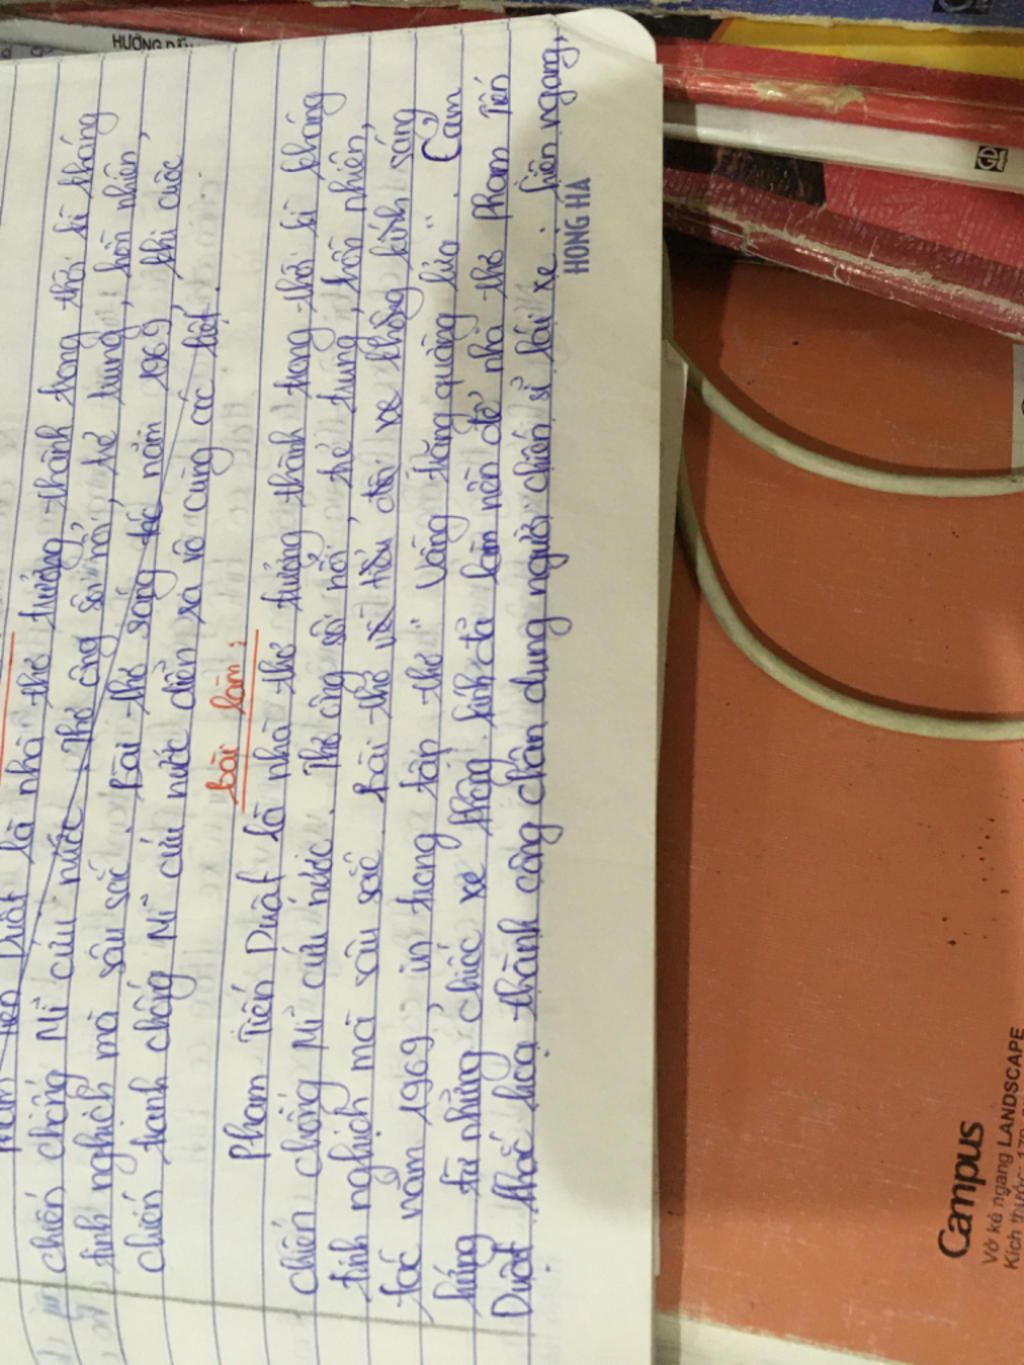 HƯỚNG DẪN
Duật là nhà thơ trưởng thành trong thời kì kháng
chiến chống Mĩ cứu nước. Thơ ông sôi nổi, trẻ trung, hồn nhiên,
tinh nghịch mà sâu sắc. Bài thơ sáng tác năm 1969, khi cuộc
chiến tranh chống Mĩ cứu nước diễn ra vô cùng ác liệt.
Bài làm:
Phạm Tiến Duật là nhà thơ trưởng thành trong thời kì kháng
chiến chống Mĩ cứu nước. Thơ ông sôi nổi, trẻ trung, hồn nhiên,
tinh nghịch mà sâu sắc. Bài thơ về tiểu đội xe không kính sáng
tác năm 1969, in trong tập thơ "Vầng trăng quầng lửa". Cảm
hứng từ những chiếc xe không kính đã làm nền để nhà thơ Phạm Tiến
Duật khắc họa thành công chân dung người chiến sĩ lái xe: hiên ngang,
HONG HA
Campus
Vở kẻ ngang LANDSCAPE
Kích thước: